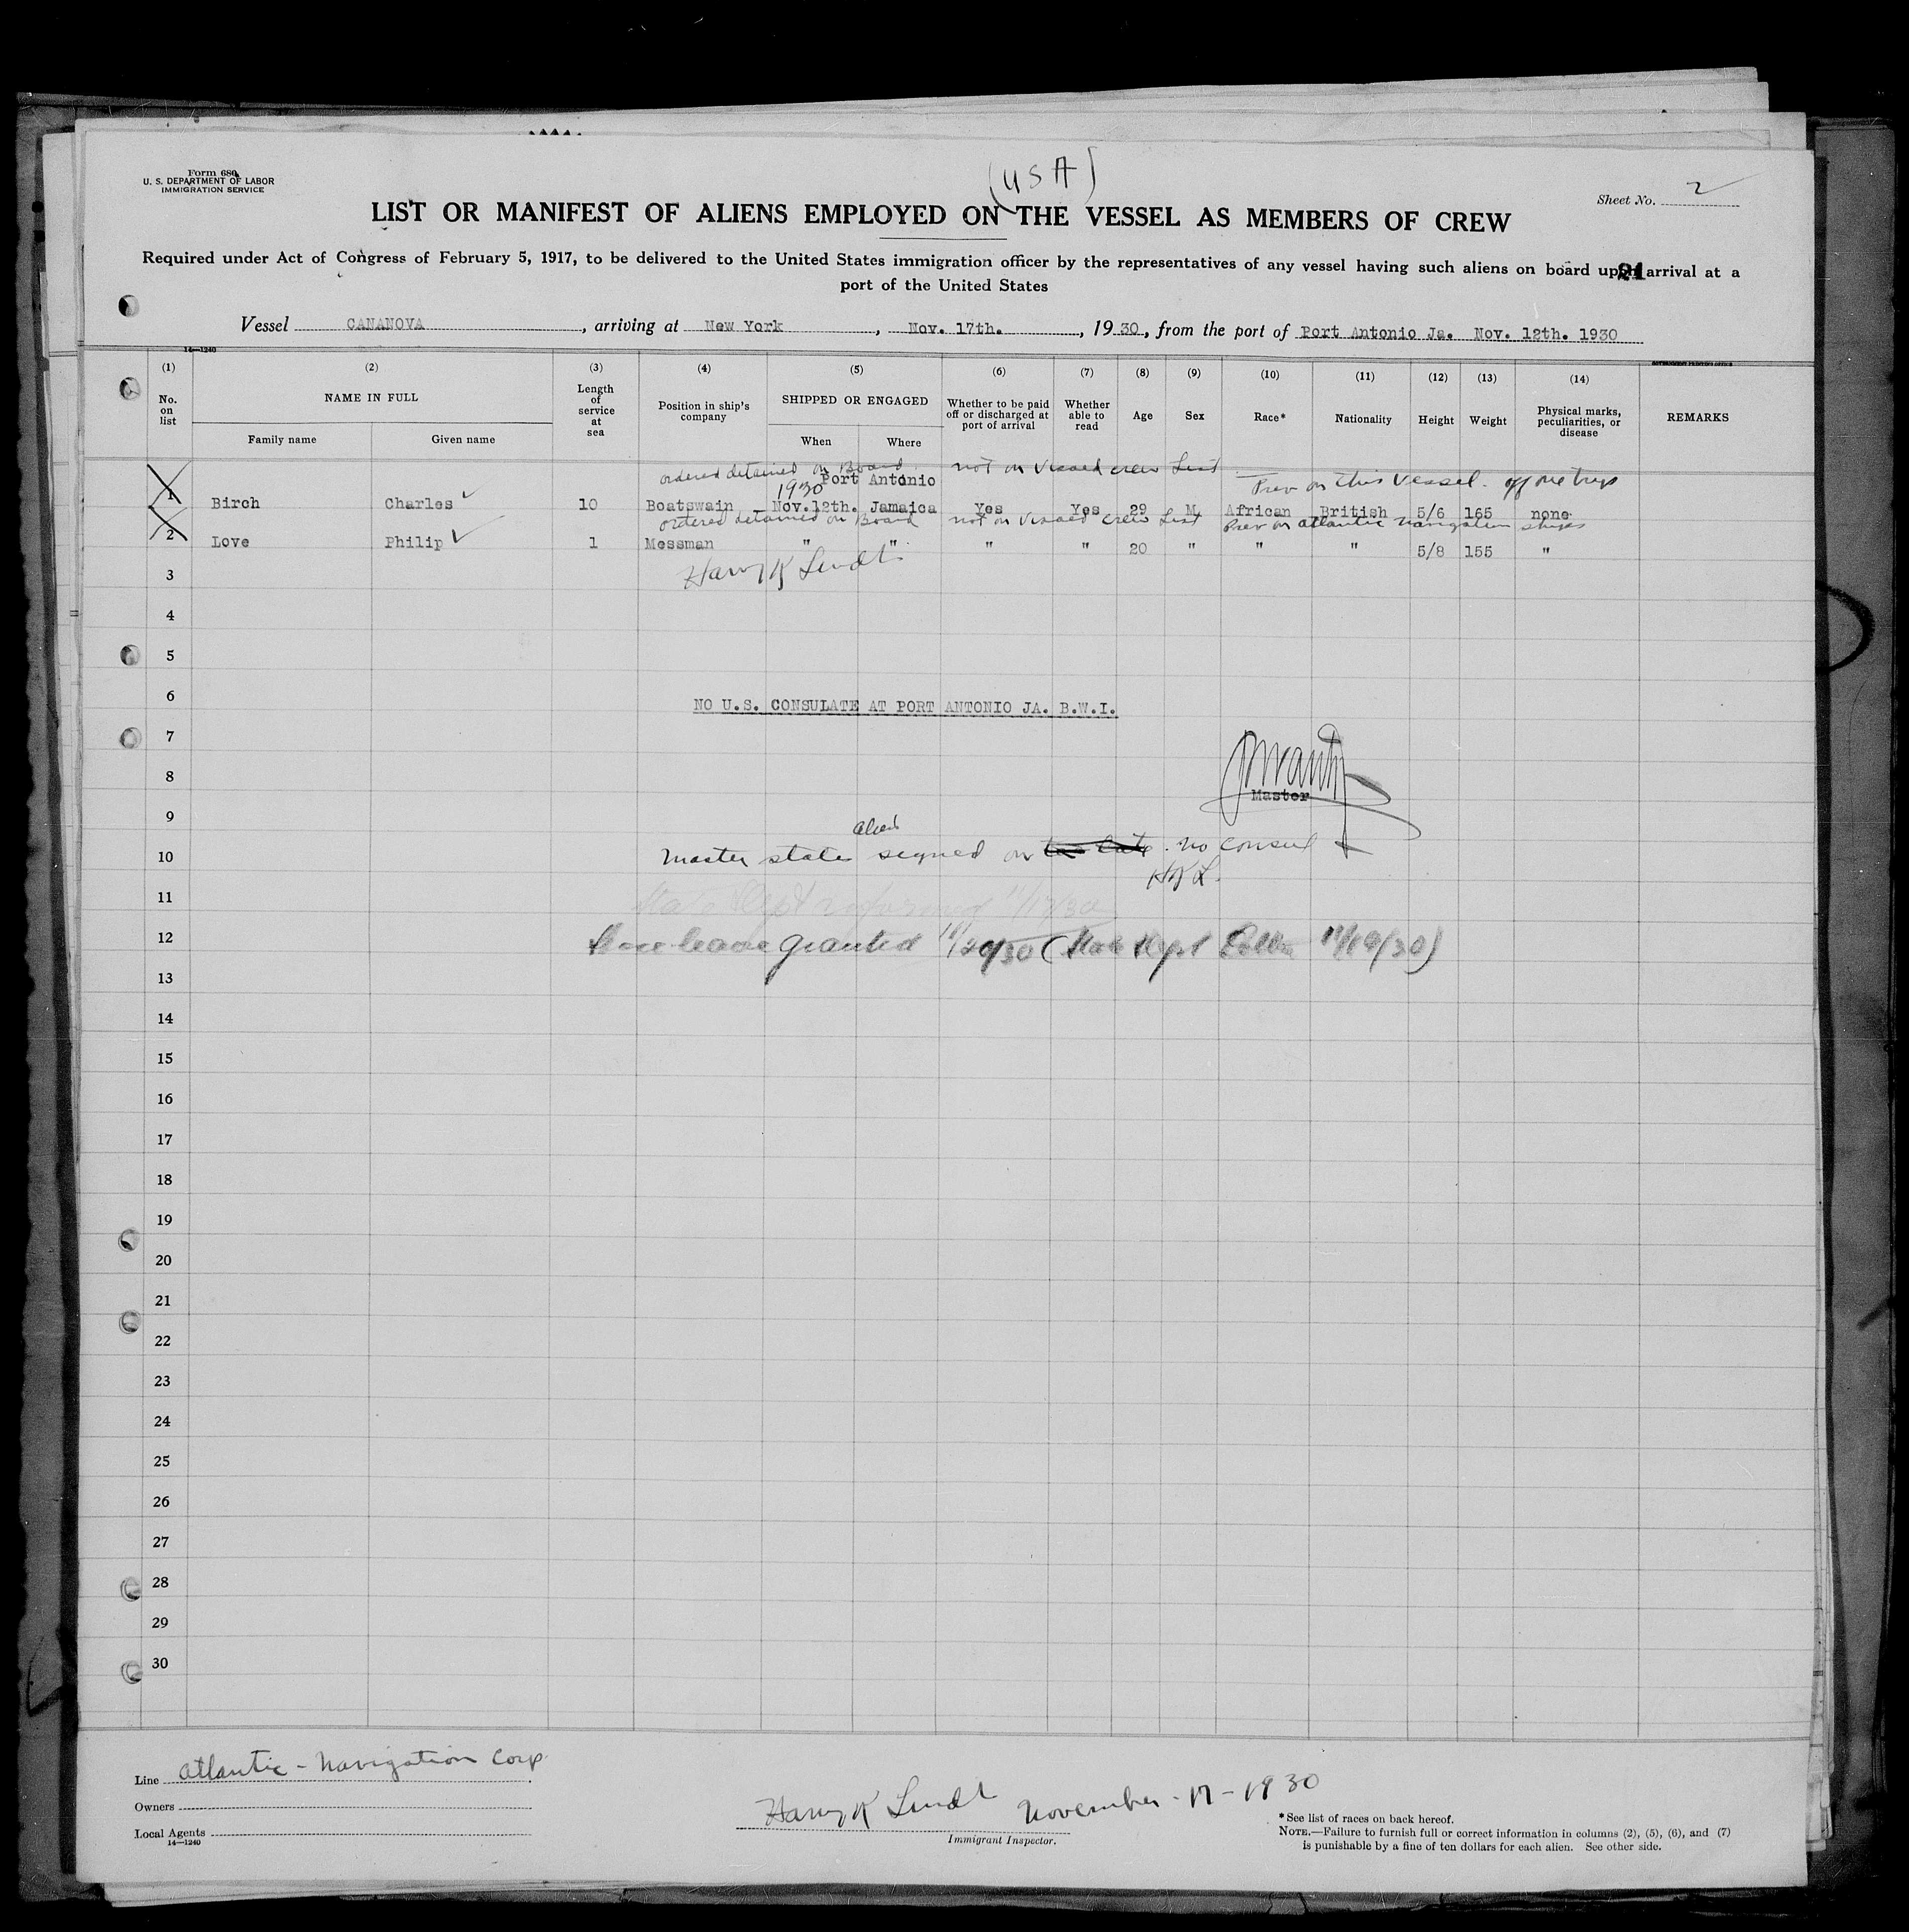 Form 680
U. S. DEPARTMENT OF LABOR
IMMIGRATION SERVICE
(USA)
Sheet No. 2
LIST OR MANIFEST OF ALIENS EMPLOYED ON THE VESSEL AS MEMBERS OF CREW
Required under Act of Congress of February 5, 1917, to be delivered to the United States immigration officer by the representatives of any vessel having such aliens on board upon arrival at a
port of the United States
21
Vessel CANANOVA, arriving at New York, Nov. 17th., 1930, from the port of Port Antonio Ja. Nov. 12th. 1930
14—1240
GOVERNMENT PRINTING OFFICE
(1) (2) (3) (4) (5) (6) (7) (8) (9) (10) (11) (12) (13) (14)
No. on list NAME IN FULL Length of service at sea Position in ship's company SHIPPED OR ENGAGED Whether to be paid off or discharged at port of arrival Whether able to read Age Sex Race* Nationality Height Weight Physical marks, peculiarities, or disease REMARKS
Family name Given name When Where
ordered detained on Board not on Visaed crew List
Port Antonio Prev on this vessel. off one trip
1930
1 Birch Charles 10 Boatswain Nov.12th. Jamaica Yes Yes 29 M African British 5/6 165 none
ordered detained on Board not on Visaed crew List Prev on atlantic navigation ships
2 Love Philip 1 Messman " " " " 20 " " " 5/8 155 "
Harry K Lindt
3
4
5
6
NO U.S. CONSULATE AT PORT ANTONIO JA. B.W.I.
7
8
Master
9
10 master state signed on too late. no consul
HKL.
11 State Dept informed 11/17/30
12 Shore leave granted 11/20/30 (State Dept 11/19/30)
13
14
15
16
17
18
19
20
21
22
23
24
25
26
27
28
29
30
Line Atlantic - Navigation Corp.
Owners
Local Agents
14—1240
Harry K Lindt November - 17 - 1930
Immigrant Inspector.
*See list of races on back hereof.
NOTE.—Failure to furnish full or correct information in columns (2), (5), (6), and (7)
is punishable by a fine of ten dollars for each alien. See other side.